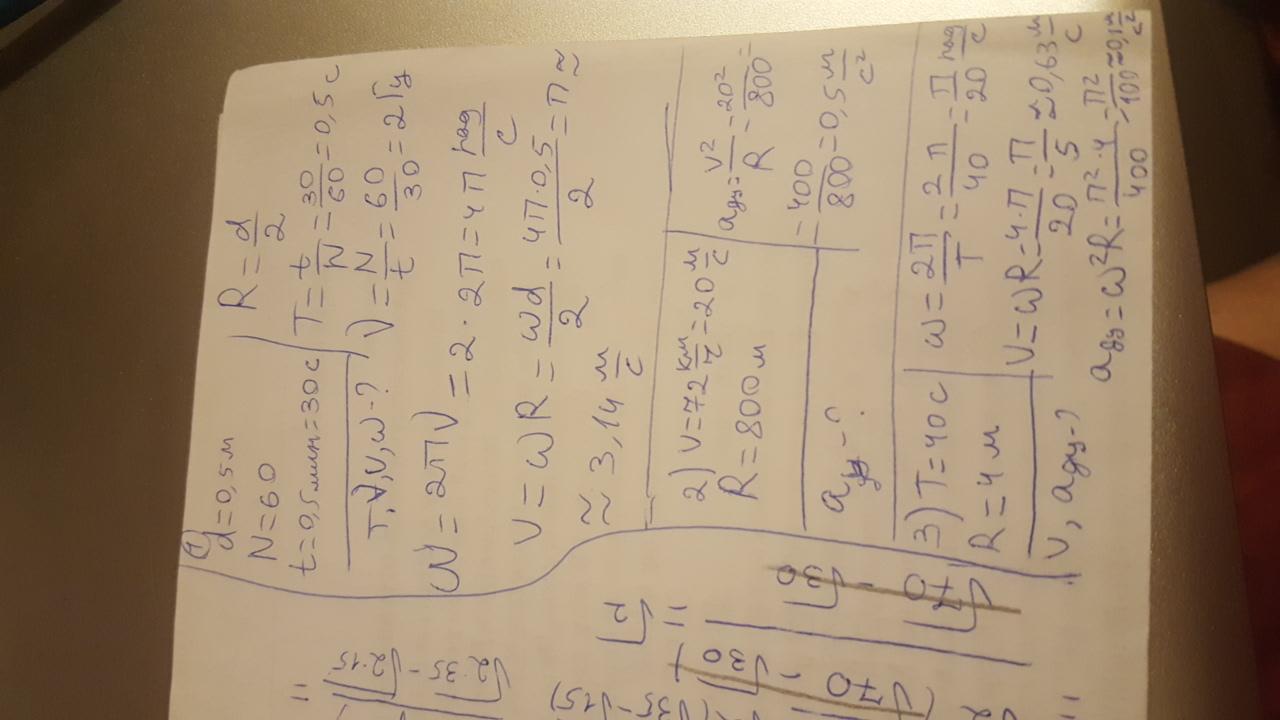 1
d=0,5м
N=60
t=0,5мин=30с
T,ν,v,ω-?
R=d/2
T=t/N=30/60=0,5с
ν=N/t=60/30=2Гц
ω=2πν=2·2π=4π рад/с
v=ωR=ωd/2=4π·0,5/2=π≈
≈3,14 м/с
2) v=72 км/ч=20 м/с
R=800м
aцу-?
aцу=v²/R=20²/800=
=400/800=0,5 м/с²
3) T=40с
R=4м
v, aцу-?
ω=2π/T=2π/40=π/20 рад/с
v=ωR=4·π/20=π/5≈0,63 м/с
aцу=ω²R=π²·4/400=π²/100≈0,1 м/с²
√2·35-√2·15
=
√70-√30
=√2
√70-√30